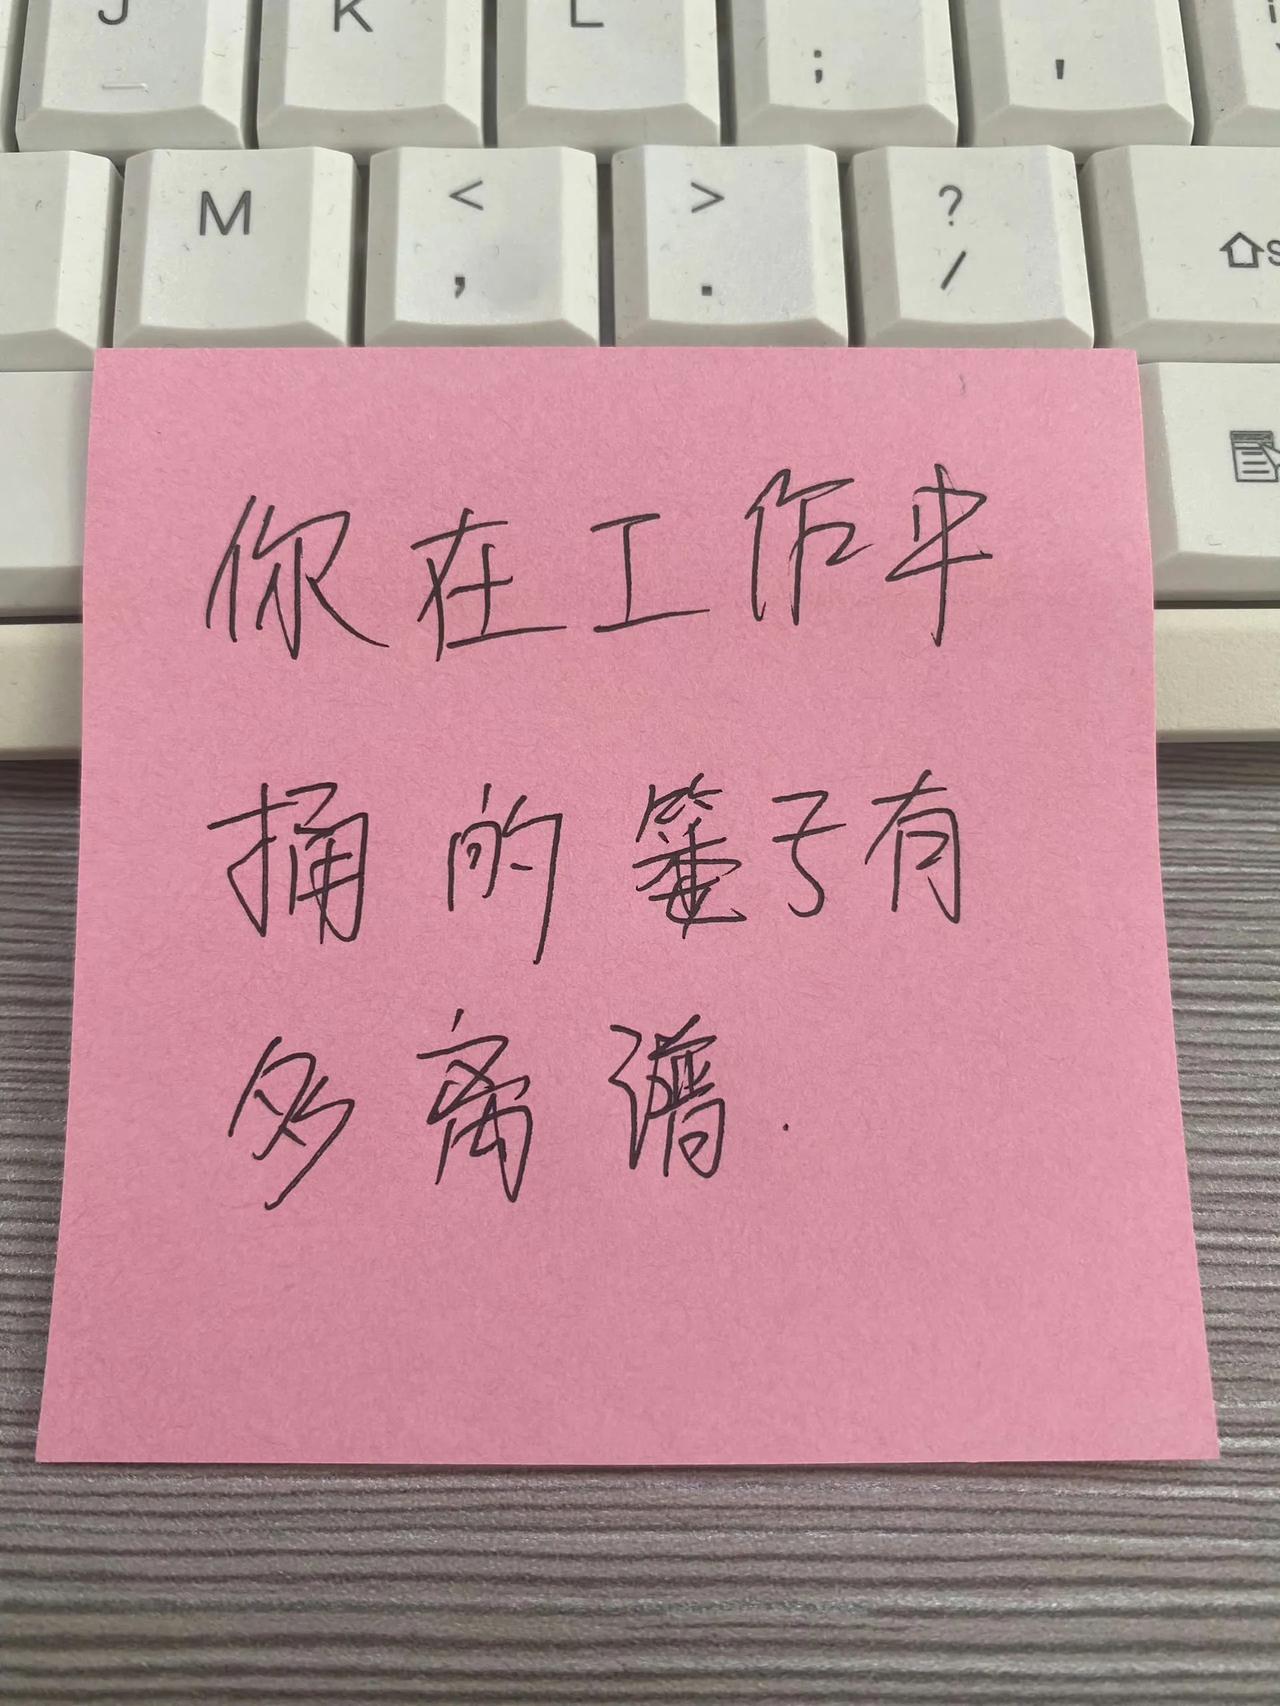 J K L ; '
M < > ?
, . /
你在工作中
捅的篓子有
多离谱.